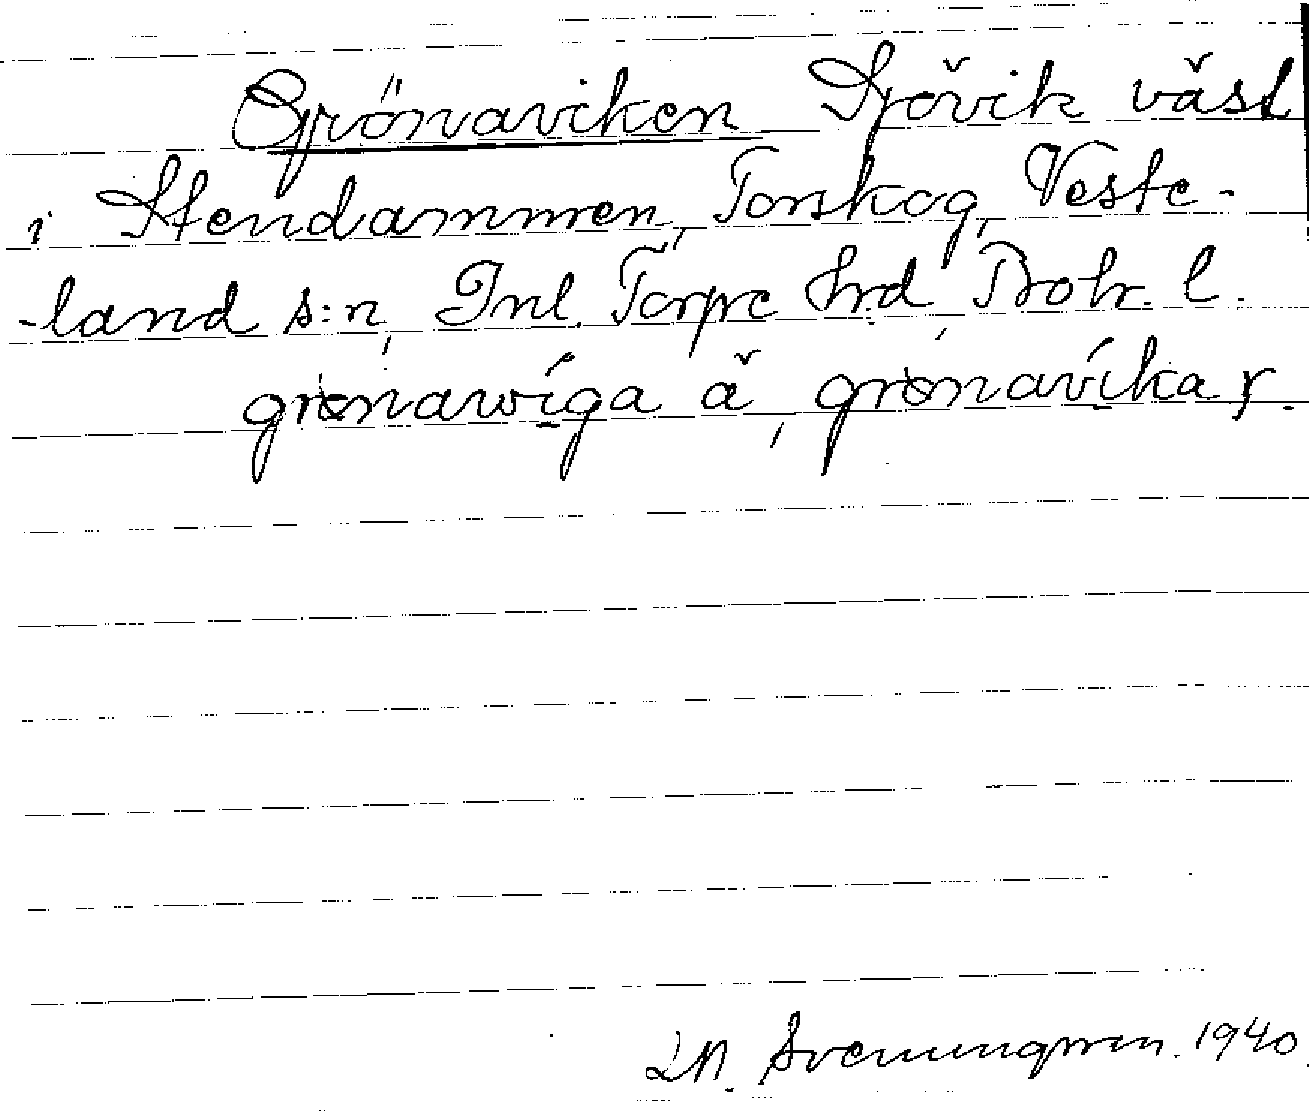 Grönaviken Sjövik väst
i Stendammen, Torskog, Veste-
-land s:n, Inl. Torpe hrd, Boh. l.
grønavíga ă, grønavíka γ.
Svenungsson. 1940.